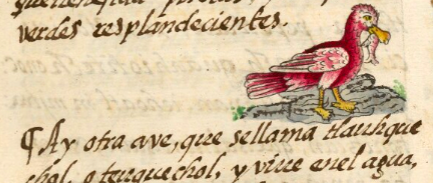 verdes resplandecientes.
¶ Ay otra ave, que sellama tlauhque
chol, o teuquechol, y viue enel agua,